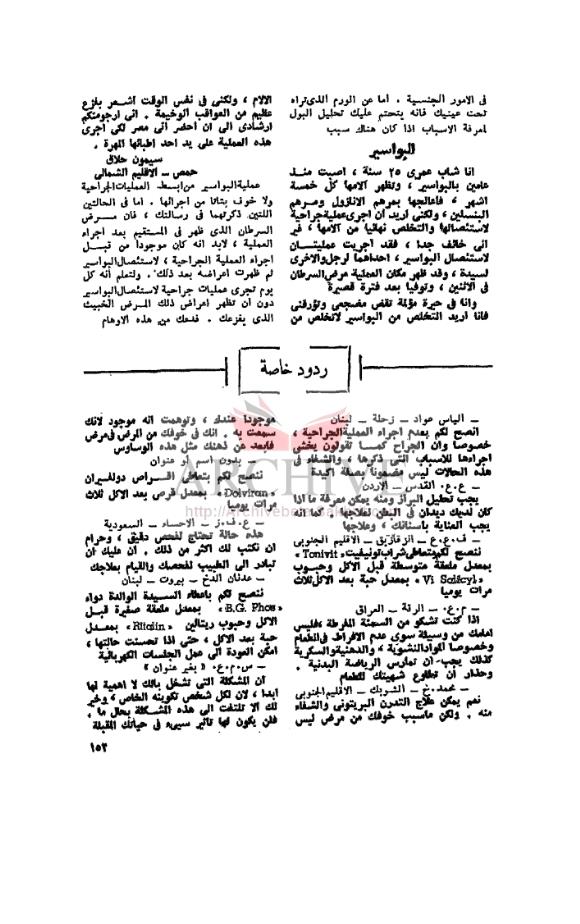 فى الامور الجنسية . اما عن الورم الذى تراه
تحت عينيك فانه يتحتم عليك تحليل البول
لمعرفة الاسباب اذا كان هناك سبب
البواسير
انا شاب عمرى ٢٥ سنة ، اصبت منذ
عامين بالبواسير ، وتظهر آلامها كل خمسة
اشهر ، فاعالجها بمرهم الانازول ومرهم
البنسلين ، ولكنى اريد ان اجرى عملية جراحية
لاستئصالها والتخلص نهائيا من آلامها ، غير
انى خائف جدا ، فقد اجريت عمليتان
لاستئصال البواسير ، احداهما لرجل والاخرى
لسيدة ، وقد ظهر مكان العملية مرض السرطان
فى الاثنين ، وتوفيا بعد فترة قصيرة
وانا فى حيرة مؤلمة تقض مضجعى وتؤرقنى
فانا اريد التخلص من البواسير لاتخلص من
الآلام ، ولكنى فى نفس الوقت اشعر بفزع
عظيم من العواقب الوخيمة . انى ارجو منكم
ارشادى الى ان احضر الى مصر لكى اجرى
هذه العملية على يد احد اطبائها المهرة .
سيمون حلاق
حمص – الاقليم الشمالى
عملية البواسير من ابسط العمليات الجراحية
ولا خوف بتاتا من اجرائها . اما فى الحالتين
اللتين ذكرتهما فى رسالتك ، فان مرض
السرطان الذى ظهر فى المستقيم بعد اجراء
العملية ، لابد انه كان موجودا من قبل
اجراء العملية الجراحية ، لاستئصال البواسير
ثم ظهرت اعراضه بعد ذلك . ولتعلم أنه كل
يوم تجرى عمليات جراحية لاستئصال البواسير
دون ان تظهر اعراض ذلك المرض الخبيث
الذى يفزعك . فدعك من هذه الاوهام
ردود خاصة
– الياس عواد – زحلة – لبنان
انصح لكم بعدم اجراء العملية الجراحية ،
خصوصا وان الجراح كما تقولون يخشى
اجراءها للاسباب التى ذكرها ، والشفاء فى
هذه الحالات ليس مضمونا بصفة اكيدة
– ع.ع. القدس – الاردن
يجب تحليل البراز ومنه يمكن معرفة ما اذا
كان لديك ديدان فى البطن لعلاجها . كما انه
يجب العناية باسنانك ، وعلاجها
– ف.ع.ع – الزقازيق – الاقليم الجنوبى
ننصح لكم بتعاطى شراب تونيفيت «Tonivit»
بمعدل ملعقة متوسطة قبل الاكل وحبوب
«Vi Salacyl» بمعدل حبة بعد الاكل ثلاث
مرات يوميا
– م.ع. – الرثة – العراق
اذا كنت تشكو من السمنة المفرطة فليس
امامك من وسيلة سوى عدم الافراط فى الطعام
وخصوصا المواد النشوية ، والدهنية والسكرية
كذلك يجب ان تمارس الرياضة البدنية .
وحذار أن تطاوع شهيتك للطعام
– محمد.خ – الشوبك – الاقليم الجنوبى
نعم يمكن علاج التدرن البريتونى والشفاء
منه . ولكن ماسبب خوفك من مرض ليس
موجودا عندك ، وتوهمت انه موجود لانك
سمعت به . انك فى خوفك من المرض فى مرض
فابعد عن ذهنك مثل هذه الوساوس
– بدون اسم أو عنوان
ننصح لكم بتعاطى اقراص دولفيران
«Dolviran» بمعدل قرص بعد الاكل ثلاث
مرات يوميا
– ع.ف.ز – الاحساء – السعودية
هذه حالة تحتاج لفحص دقيق ، وحرام
ان نكتب لك اكثر من ذلك . ان عليك ان
تبادر الى الطبيب لفحصك والقيام بعلاجك
– عدنان الدخ – بيروت – لبنان
ننصح لكم باعطاء السيدة الوالدة دواء
«B.G. Phos» بمعدل ملعقة صغيرة قبل
الاكل وحبوب ريتالين «Ritalin» بمعدل
حبة بعد الاكل ، حتى اذا تحسنت حالتها ،
امكن العودة الى عمل الجلسات الكهربائية
– س.م.ع. « بغير عنوان »
أن المشكلة التى تشغل بالك لا اهمية لها
ابدا ، لان لكل شخص تكوينه الخاص ، وخير
لك الا تلتفت الى هذه المشكلة بحال ما .
فلن يكون لها تاثير سيىء فى حياتك المقبلة
١٥٣
ARCHIVE